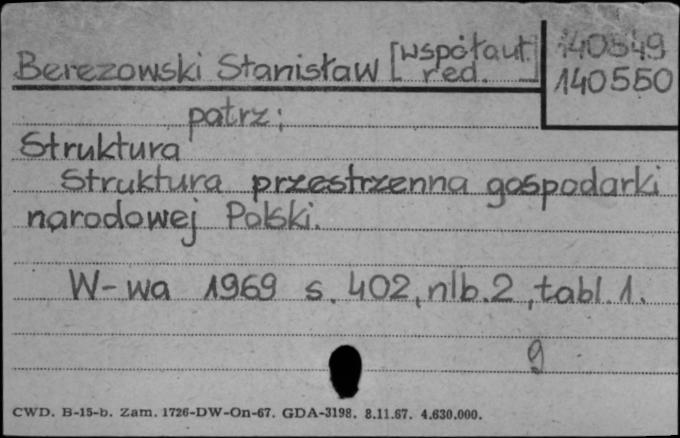 Berezowski Stanisław [współaut. red.]
140549
140550
patrz:
Struktura
Struktura przestrzenna gospodarki
narodowej Polski.
W-wa 1969 s. 402, nlb. 2, tabl. 1.
g
CWD. B-15-b. Zam. 1726-DW-On-67. GDA-3198. 8.11.67. 4.630.000.